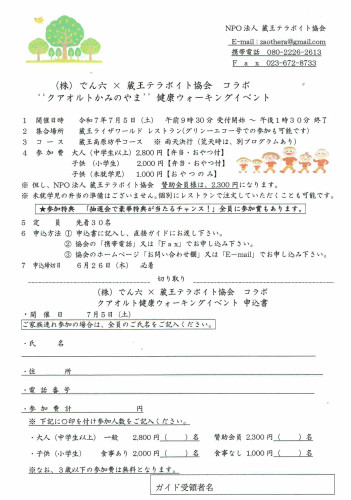 NPO法人 蔵王テラポイト協会
E-mail : zaothera@gmail.com
携帯電話 080-2226-2613
Fax 023-672-8733
(株) でん六 × 蔵王テラポイト協会 コラボ
“クアオルトかみのやま” 健康ウォーキングイベント
1 開催日時 令和7年7月5日(土) 午前9時30分 受付開始 〜 午後1時30分 終了
2 集合場所 蔵王ライザワールド レストラン(グリーンエコー号での参加も可能です)
3 コース 蔵王高原坊平コース ※ 雨天決行 (荒天時は、別プログラムあり)
4 参加費 大人 (中学生以上) 2,800円【弁当・おやつ付】
子供 (小学生) 2,000円【弁当・おやつ付】
子供 (未就学児) 1,000円【おやつのみ】
※ 但し、NPO法人 蔵王テラポイト協会 賛助会員様は、2,300円になります。
※ 未就学児の弁当の準備はございません。個別にレストランで注文していただくことも可能です。
★参加特典 「抽選会で豪華特典が当たるチャンス!」全員に参加賞もあります。
5 定員 先着30名
6 申込方法 ① 申込書に記入し、直接ガイドにお渡し下さい。
② 協会の「携帯電話」又は「Fax」でお申し込み下さい。
③ 協会のホームページ「お問い合わせ欄」又は「E-mail」でお申し込み下さい。
7 申込締切日 6月26日(木) 必着
切り取り
(株) でん六 × 蔵王テラポイト協会 コラボ
クアオルト健康ウォーキングイベント 申込書
・開催日 7月5日(土)
ご家族連れ参加の場合は、全員のご氏名をご記入ください。
・氏名
・住所
・電話番号
・参加費計 円
※ 下記に○印を付け参加人数をご記入ください。
・大人 (中学生以上) 一般 2,800円 ( )名 賛助会員 2,300円 ( )名
・子供 (小学生) 食事あり 2,000円 ( )名 食事なし 1,000円 ( )名
※なお、3歳以下の参加費は無料となります。
ガイド受領者名